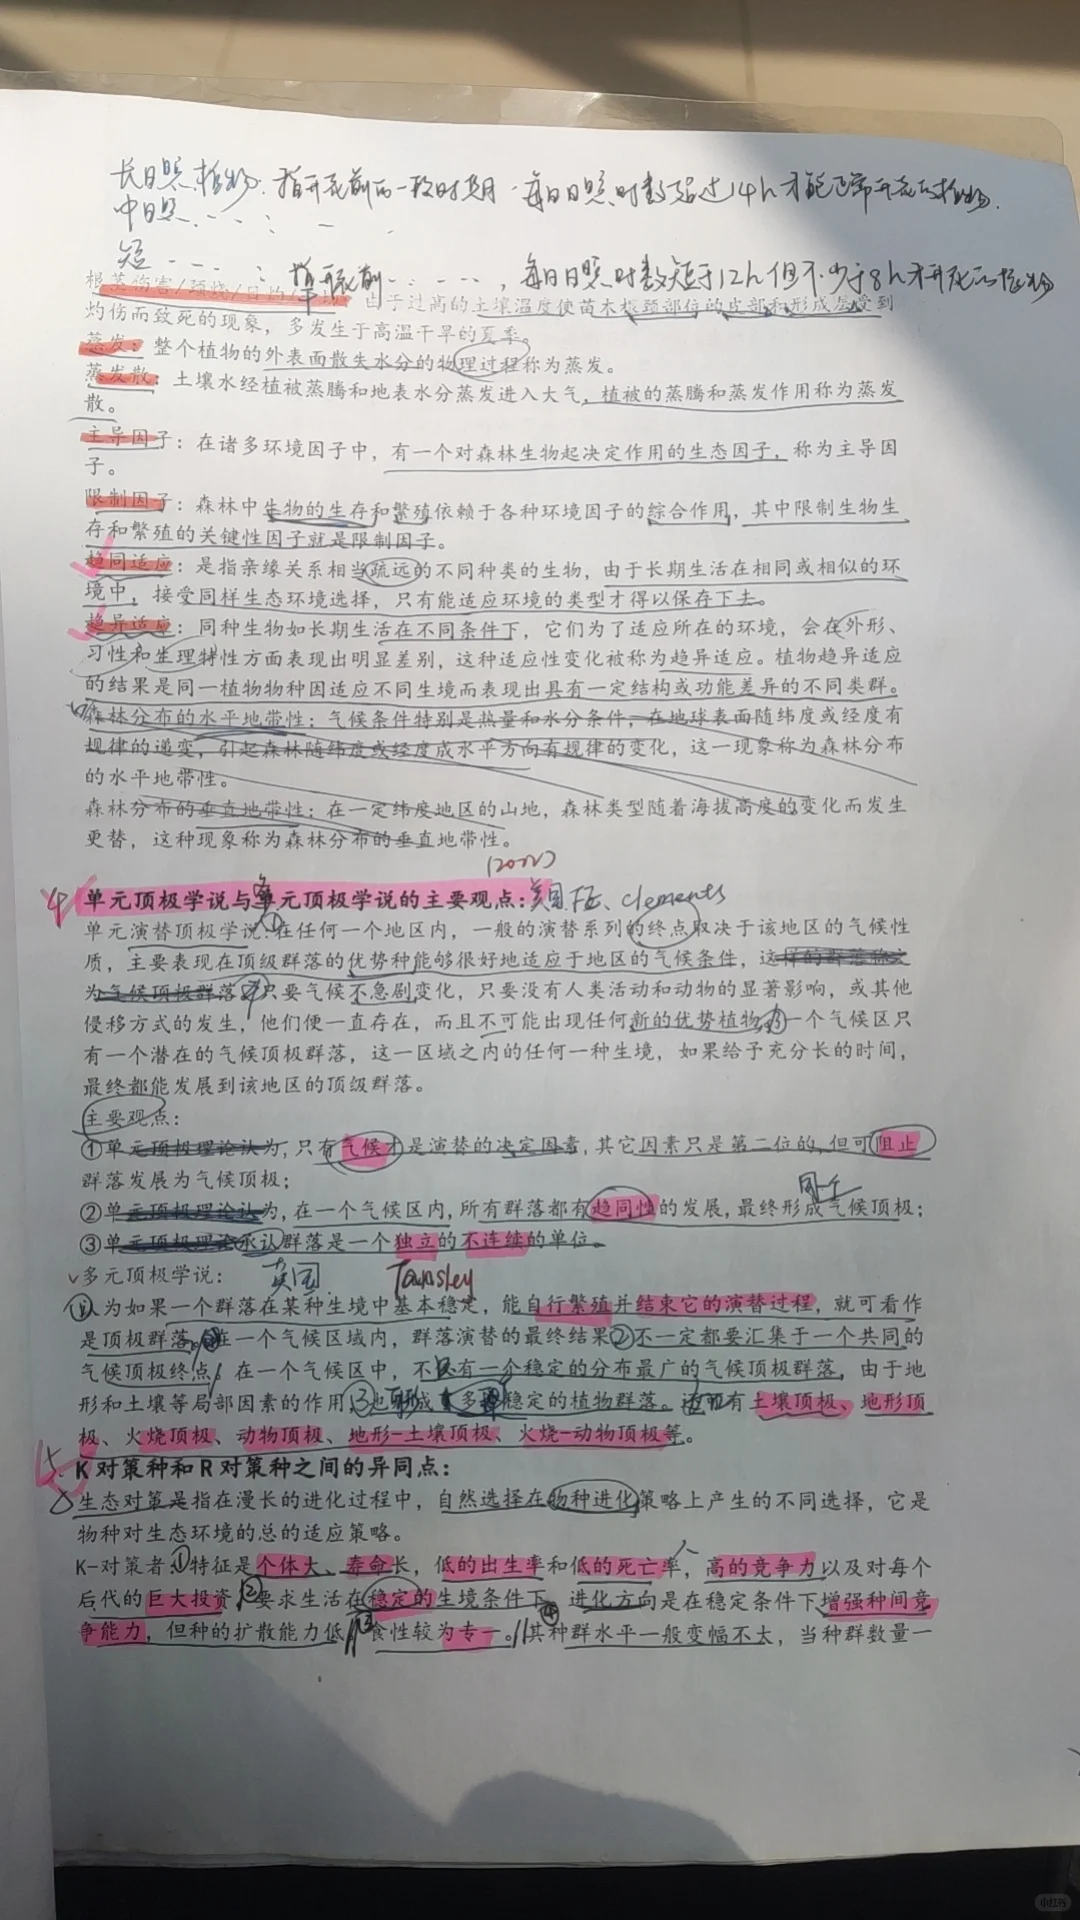 长日照植物:指开花前的一段时期,每日日照时数超过14h才能正常开花的植物.
中日照
短 开花前 , 每日日照时数短于12h但不少于8h才开花的植物
根茎伤害/颈烧/日灼/ 由于过高的土壤温度使苗木根颈部位的皮部和形成层受到
灼伤而致死的现象,多发生于高温干旱的夏季。
蒸发:整个植物的外表面散失水分的物理过程称为蒸发。
蒸发散:土壤水经植被蒸腾和地表水分蒸发进入大气,植被的蒸腾和蒸发作用称为蒸发
散。
主导因子:在诸多环境因子中,有一个对森林生物起决定作用的生态因子,称为主导因
子。
限制因子:森林中生物的生存和繁殖依赖于各种环境因子的综合作用,其中限制生物生
存和繁殖的关键性因子就是限制因子。
趋同适应:是指亲缘关系相当疏远的不同种类的生物,由于长期生活在相同或相似的环
境中,接受同样生态环境选择,只有能适应环境的类型才得以保存下去。
趋异适应:同种生物如长期生活在不同条件下,它们为了适应所在的环境,会在外形、
习性和生理特性方面表现出明显差别,这种适应性变化被称为趋异适应。植物趋异适应
的结果是同一植物物种因适应不同生境而表现出具有一定结构或功能差异的不同类群。
森林分布的水平地带性:气候条件特别是热量和水分条件,在地球表面随纬度或经度有
规律的递变,引起森林随纬度或经度成水平方向有规律的变化,这一现象称为森林分布
的水平地带性。
森林分布的垂直地带性:在一定纬度地区的山地,森林类型随着海拔高度的变化而发生
更替,这种现象称为森林分布的垂直地带性。
(2002)
4 单元顶极学说与多元顶极学说的主要观点:美国 Clements
单元演替顶极学说:①在任何一个地区内,一般的演替系列的终点取决于该地区的气候性
质,主要表现在顶级群落的优势种能够很好地适应于地区的气候条件,这样的群落称之
为气候顶极群落。②只要气候不急剧变化,只要没有人类活动和动物的显著影响,或其他
侵移方式的发生,他们便一直存在,而且不可能出现任何新的优势植物。③一个气候区只
有一个潜在的气候顶极群落,这一区域之内的任何一种生境,如果给予充分长的时间,
最终都能发展到该地区的顶级群落。
主要观点:
①单元顶极理论认为,只有气候才是演替的决定因素,其它因素只是第二位的,但可阻止
群落发展为气候顶极;
②单元顶极理论认为,在一个气候区内,所有群落都有趋同性的发展,最终形成气候顶极;
③单元顶极理论承认群落是一个独立的不连续的单位。
√多元顶极学说: 英国 Tansley
①认为如果一个群落在某种生境中基本稳定,能自行繁殖并结束它的演替过程,就可看作
是顶极群落。在一个气候区域内,群落演替的最终结果②不一定都要汇集于一个共同的
气候顶极终点。在一个气候区中,不只有一个稳定的分布最广的气候顶极群落,由于地
形和土壤等局部因素的作用,③也形成多种稳定的植物群落。还可有土壤顶极、地形顶
极、火烧顶极、动物顶极、地形-土壤顶极、火烧-动物顶极等。
5. K 对策种和 R 对策种之间的异同点:
生态对策是指在漫长的进化过程中,自然选择在物种进化策略上产生的不同选择,它是
物种对生态环境的总的适应策略。
K-对策者①特征是个体大、寿命长,低的出生率和低的死亡率,高的竞争力以及对每个
后代的巨大投资,②要求生活在稳定的生境条件下,进化方向是在稳定条件下增强种间竞
争能力,但种的扩散能力低,③食性较为专一。④其种群水平一般变幅不太,当种群数量一
小红书